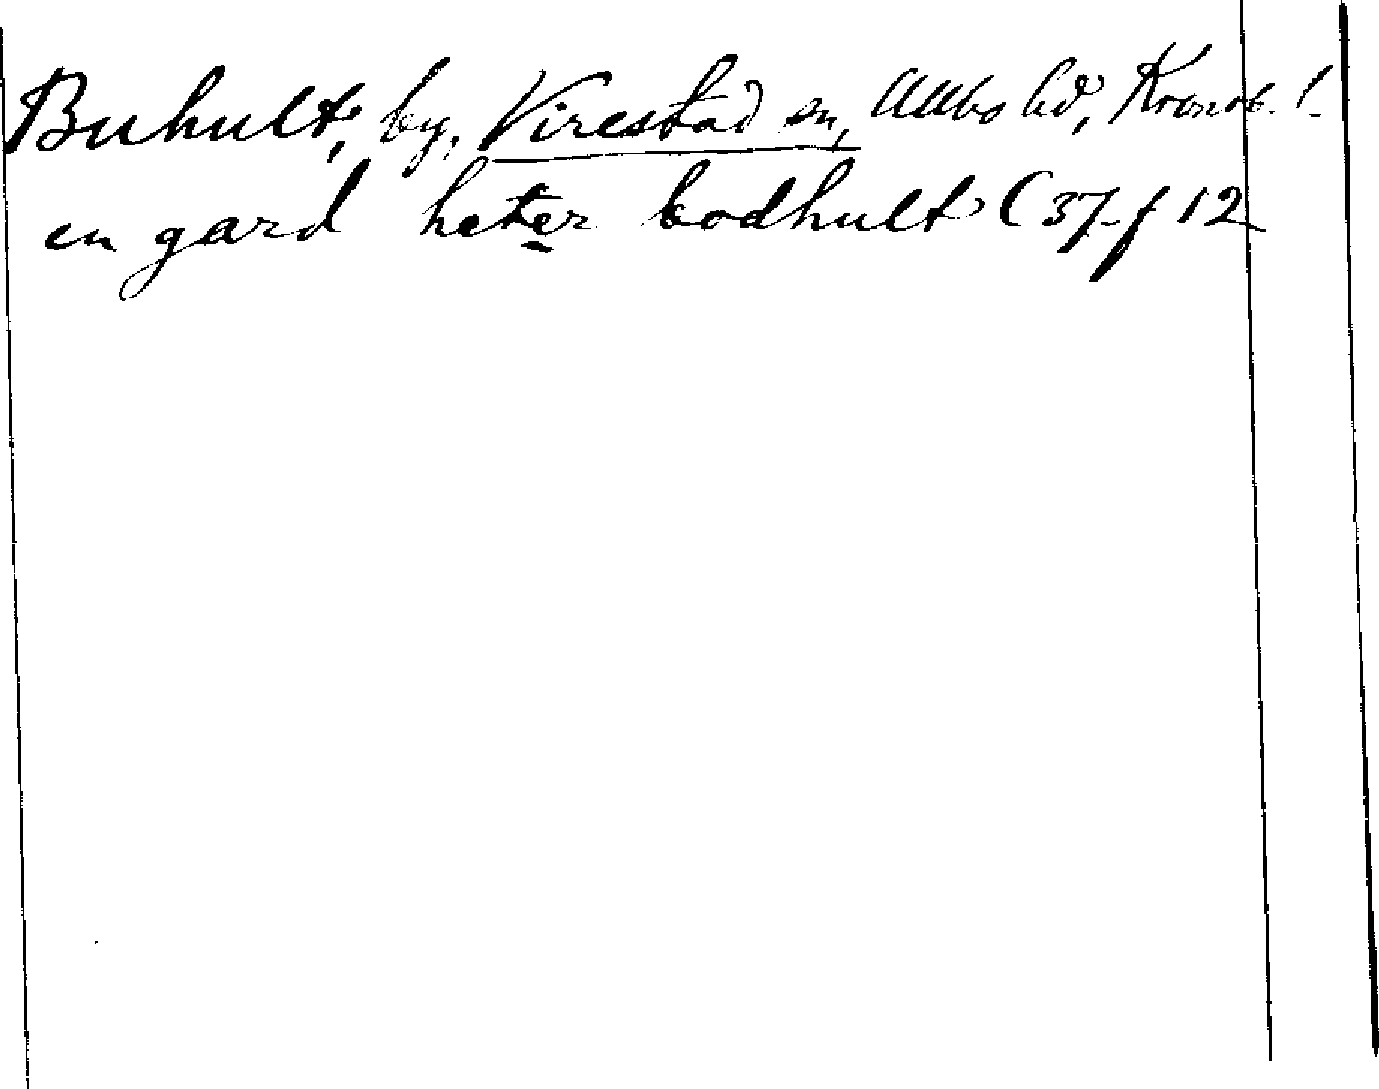 Buhult, by, Virestad sn, Allbo hd, Kronob. l.
en gard heter bodhult (37 f 12